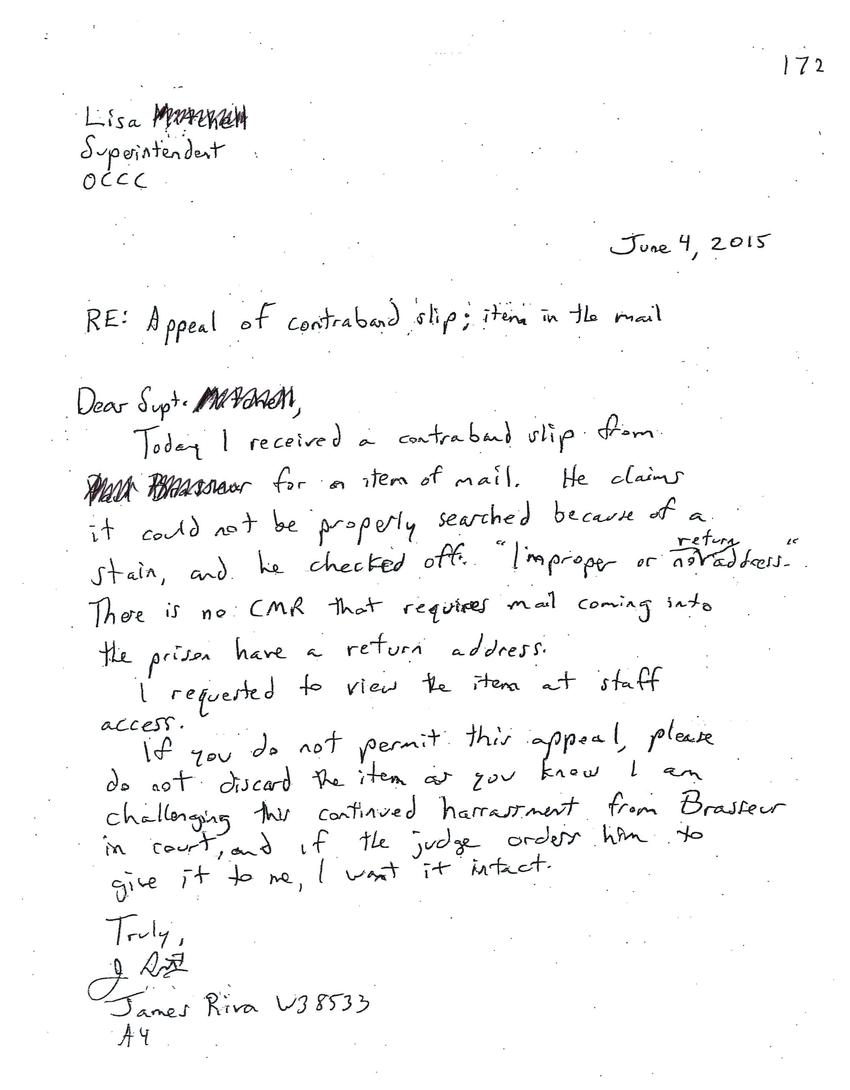 172
Lisa
Superintendent
OCCC
June 4, 2015
RE: Appeal of contraband slip; item in the mail
Dear Supt. ,
Today I received a contraband slip from
for a item of mail. He claims
it could not be properly searched because of a
stain, and he checked off "Improper or no return address."
There is no CMR that requires mail coming into
the prison have a return address.
I requested to view the item at staff
access.
If you do not permit this appeal, please
do not discard the item as you know I am
challenging this continued harrassment from Brasseur
in court, and if the judge orders him to
give it to me, I want it intact.
Truly,
James Riva W38533
A4